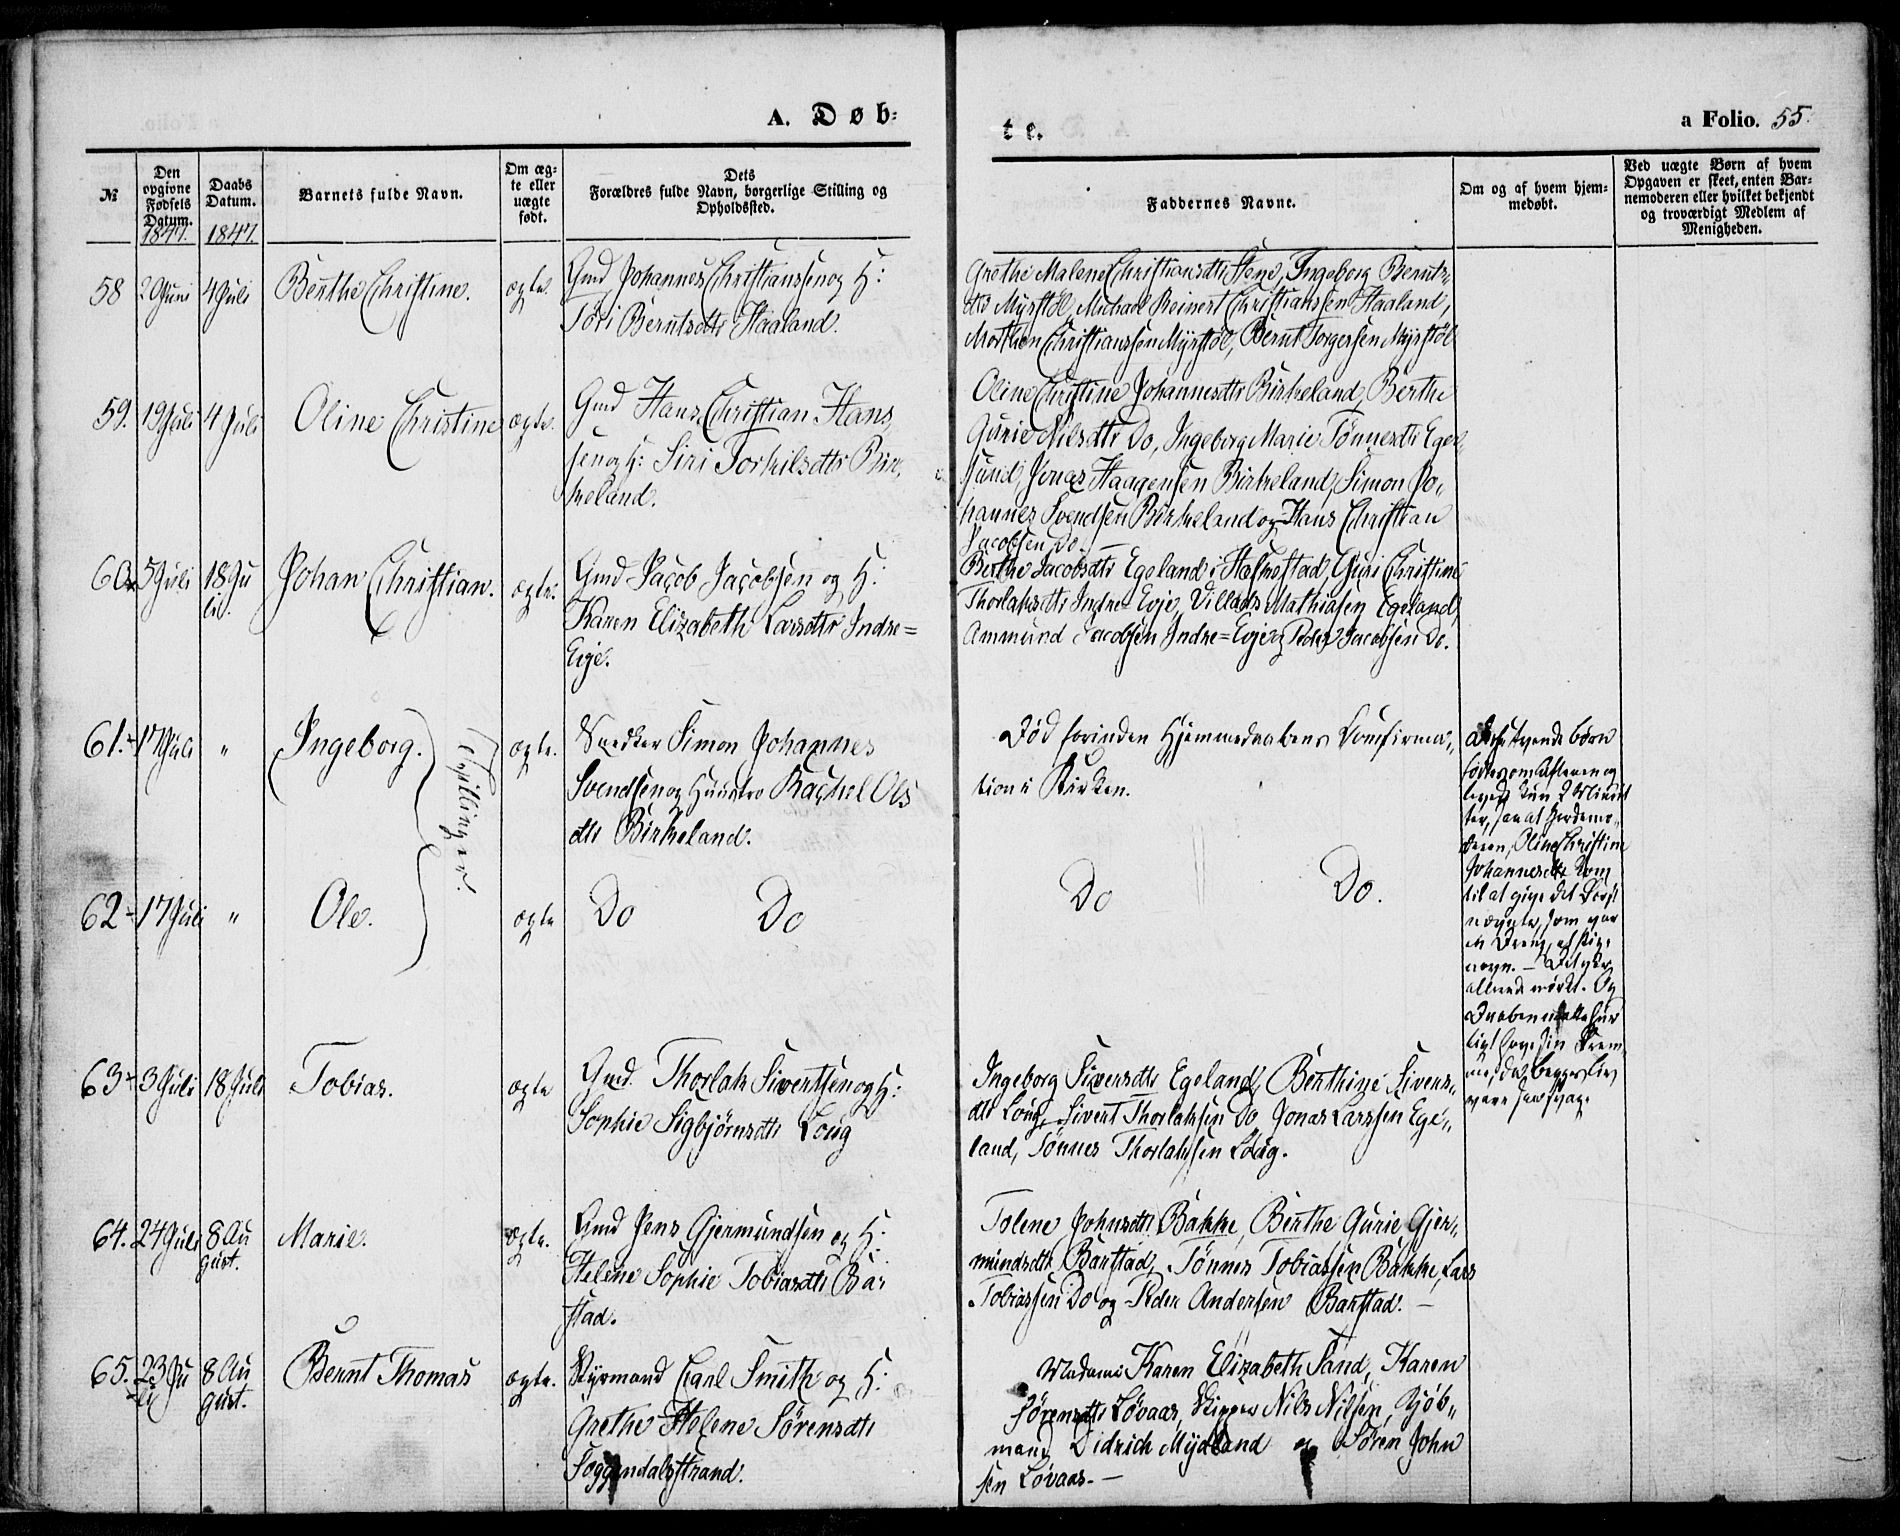 A. Døb-
te.
a Folio. 55.
№
Den opgivne Fødsels Datum. 1847.
Daabs Datum. 1847.
Barnets fulde Navn.
Om ægte eller uægte født.
Dets Forældres fulde Navn, borgerlige Stilling og Opholdssted.
Faddernes Navne.
Om og af hvem hjemmedøbt.
Ved uægte Børn af hvem Opgaven er skeet, enten Barnemoderen eller hvilket bekjendt og troværdigt Medlem af Menigheden.
58 2 Juni 4 Juli Berthe Christine. ægte. Gmd Johannes Christianssen og H:
Tori Berntsdtr Haaland.
Grethe Malene Christiansdtr Stene, Ingeborg Bernts-
dtr Myrstøl, Michael Reinert Christianssen Haaland,
Morthen Christianssen Myrstøl, Bernt Torgersen Myrstøl
59. 1 Juli 4 Juli Oline Christine ægte. Gmd Hans Christian Hans
sen og H: Siri Torkilsdtr Bir-
keland.
Oline Christine Johannesdtr Birkeland, Berthe
Gurie Nilsdtr Do, Ingeborg Marie Tønnesdtr Eger-
sund, Jonas Haagensen Birkeland, Simon Jo-
hannes Svendsen Birkeland og Hans Christian
Jacobsen Do. —
60. 5 Juli 18 Ju
li. Johan Christian. ægte. Gmd Jacob Jacobsen og H:
Karen Elizabeth Larsdtr Indre=
Evje.
Berthe Jacobsdtr Egeland i Hellestad, Guri Christine
Thorlaksdtr Indre=Evje, Villads Mathiasen Egeland,
Ammund Jacobsen Indre=Evje og Peder Jacobsen Do.
61. 17 Juli " Ingeborg. Tvillinger. ægte. Snedker Simon Johannes
Svendsen og Hustro Rachel Ols
dtr Birkeland.
Død forinden Hjemmedaabens Confirma-
tion i Kirken.
62. 17 Juli " Ole. ægte Do Do
Do Do.
Disse tvende Børn
fødtes om Aftenen og
levede kun 2 Minut
ter, saa at Jordemo-
deren, Oline Christine
Johannesdtr kom
til at give det Først
nævnte, som var
en Dreng, et Pige
navn. —
allerede mørkt. Og
Daaben maatte hur
tigt have sin Frem
me, da begges Liv
vare saa svage.
63. 3 Juli 18 Juli Tobias. ægte Gmd. Thorlak Sivertsen og H:
Sophie Sigbjørnsdtr Loug
Ingeborg Siversdtr Egeland, Berthine Sivers-
dtr Loug, Sivert Thorlaksen Do, Jonas Larssen Ege-
land, Tønnes Thorlaksen Loug.
64. 24 Juli 8 Au
gust. Marie. ægte. Gmd Jens Gjermundsen og H:
Helene Sophie Tobiasdtr Bar
stad.
Tolene Johnsdtr Bakke, Berthe Gurie Gjer-
mundsdtr Barstad, Tønnes Tobiassen Bakke, Lars
Tobiassen Do og Peder Andersen Barstad. —
65. 23 Ju
li 8 Au
gust. Bernt Thomas ægte. Styrmand Carl Smith og H:
Grethe Helene Sørensdtr
Soggendalsstrand.
Madame Karen Elizabeth Sand, Karen
Sørensdtr Løvaas, Skipper Nils Nilsen, Kjøb-
mand Didrich Mydland og Søren John
sen Løvaas. —